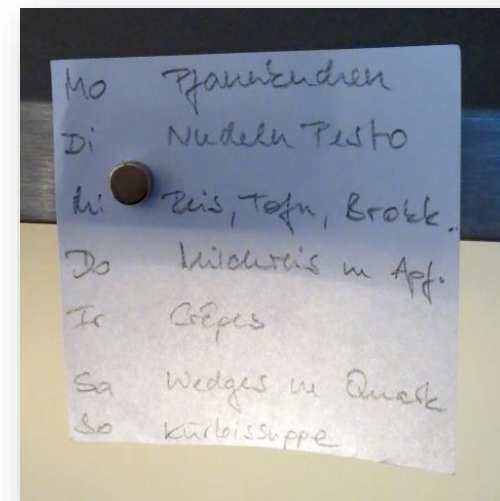 Mo Pfannkuchen
Di Nudeln Pesto
Mi Reis, Tofu, Brokk..
Do Milchreis m Apf.
Fr Crêpes
Sa Wedges m Quark
So Kürbissuppe